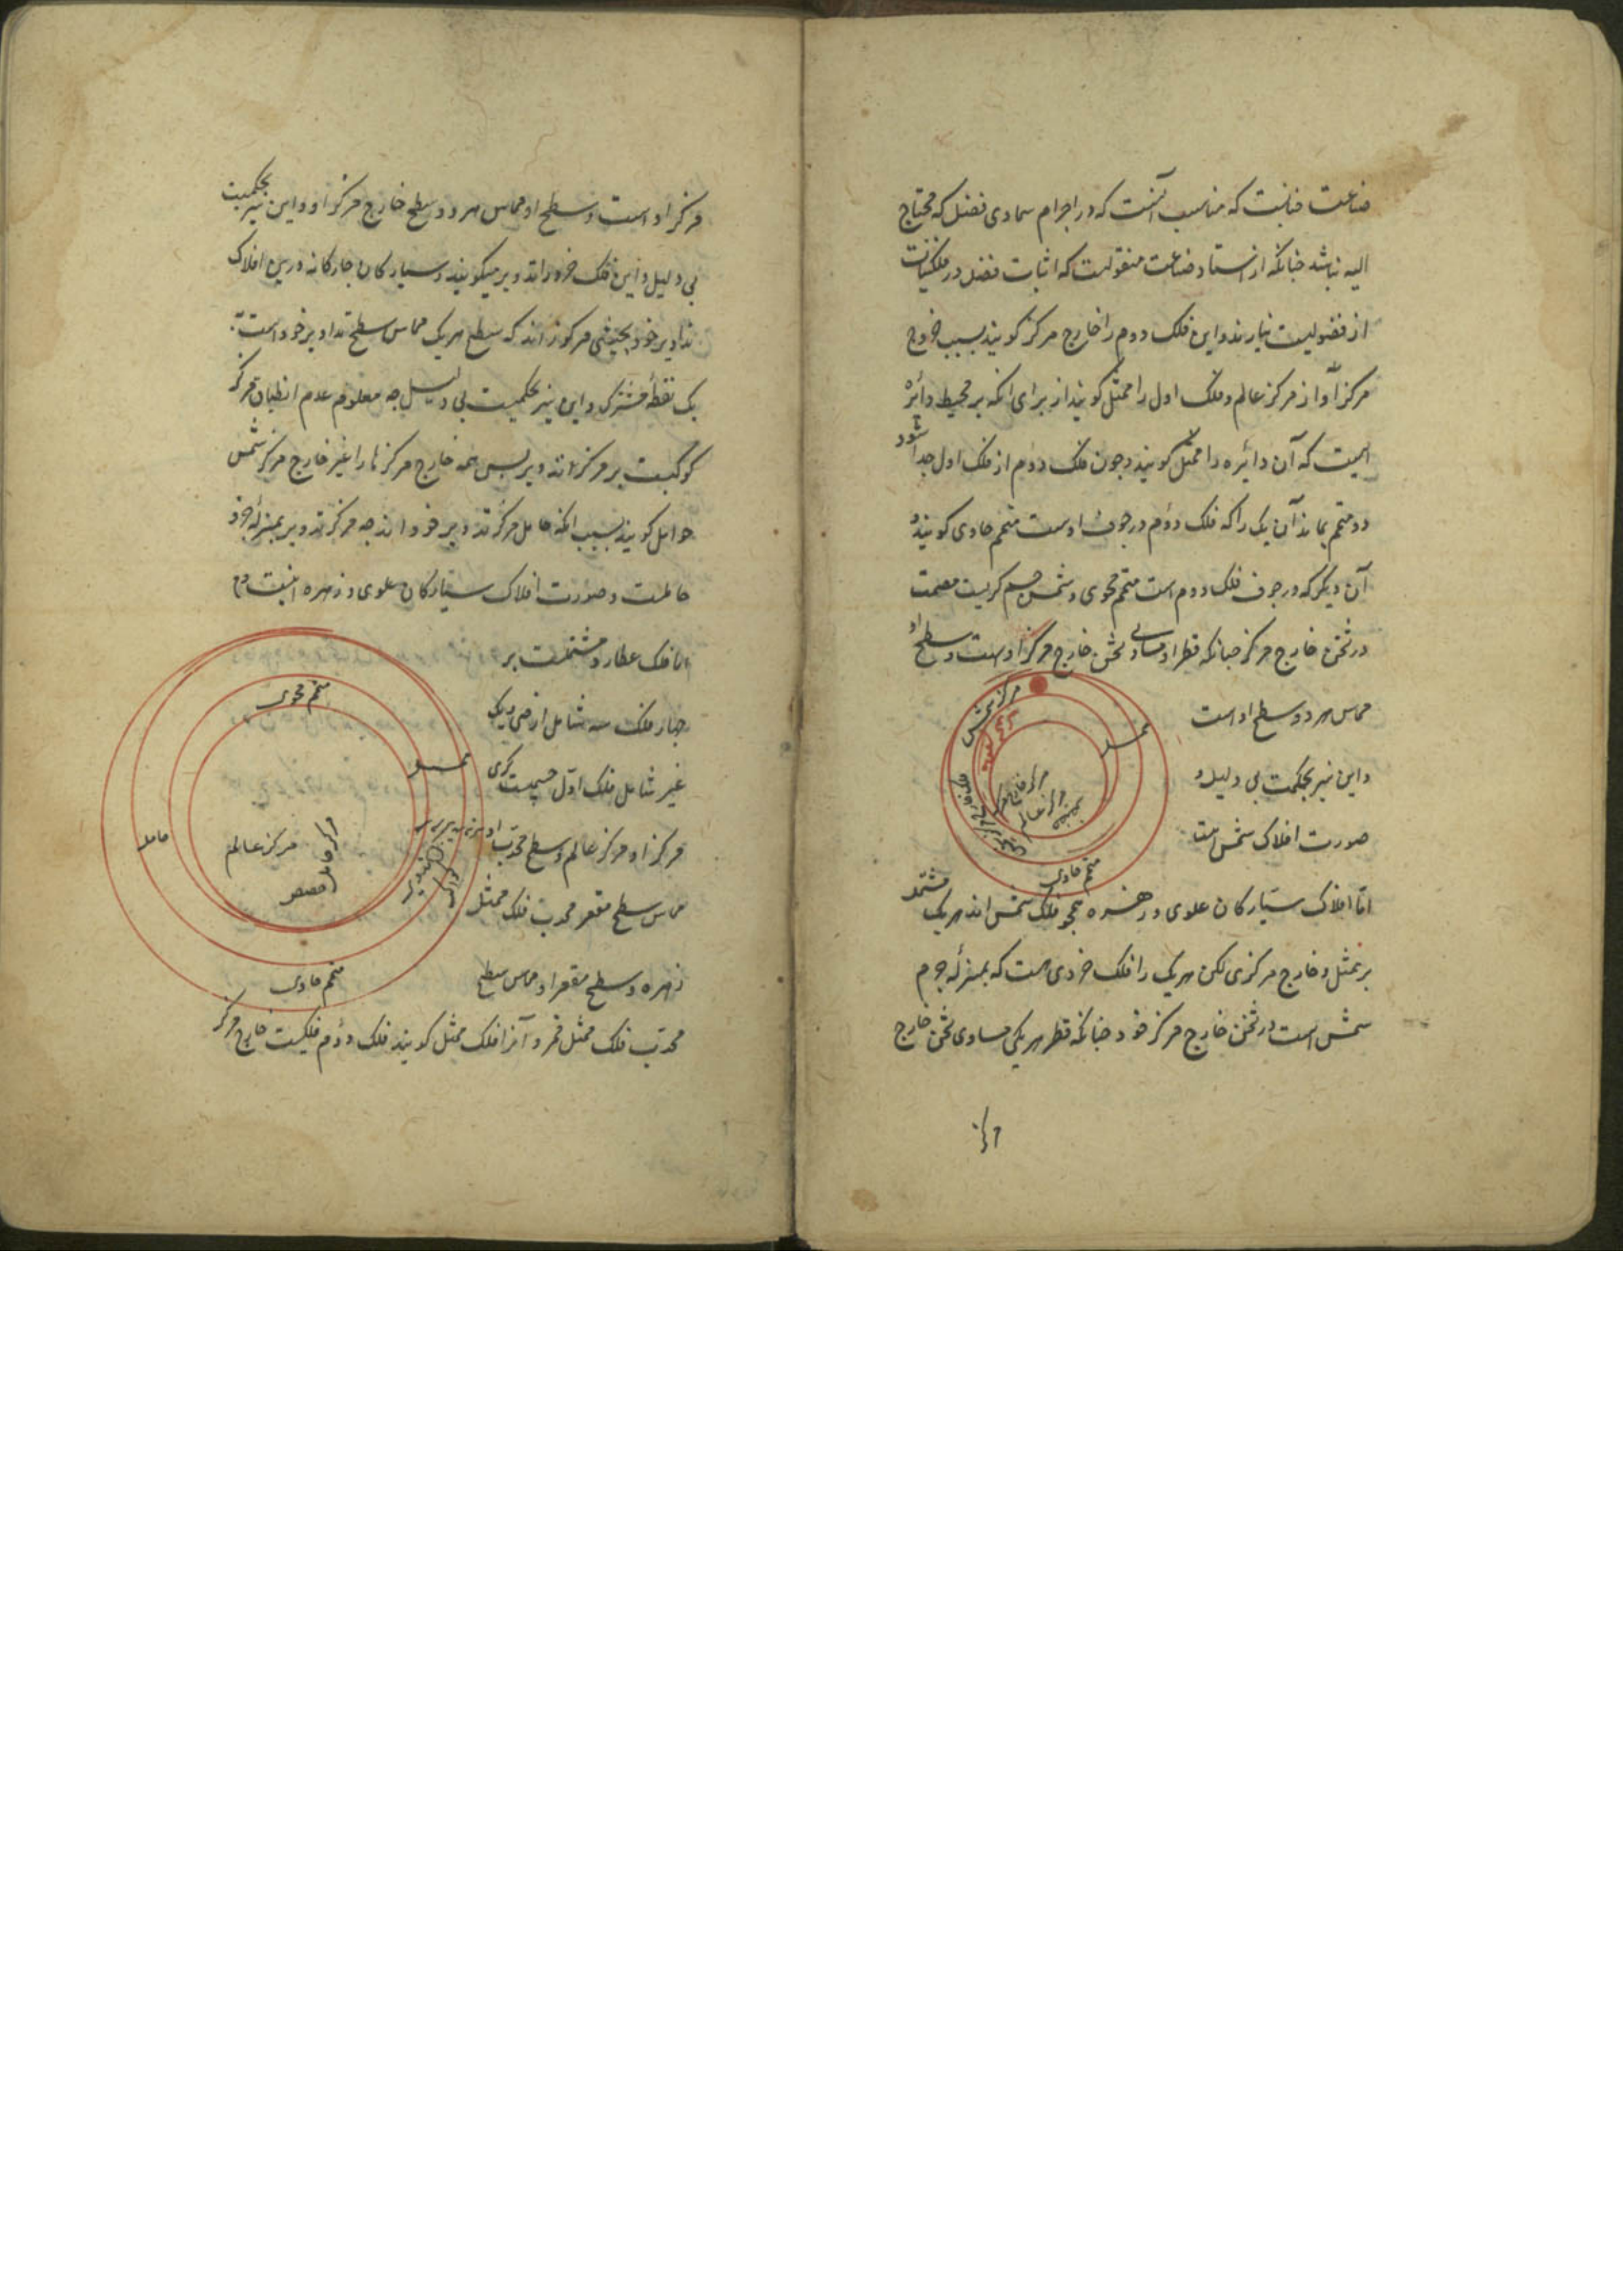 صناعت چنانست که مناسب آنست که در اجرام سماوی فضل که محتاج
الیه نباشد چنانکه از استاد صناعت منقولست که اثبات فضل در فلکیات
از فضولیست نیارند و این فلک دوم را خارج مرکز کویند بسبب خروج
مرکز او از مرکز عالم و فلک اول را ممثل کویند از برای انکه بر محیط دائره
ایست که آن دائره را ممثل کویند و چون فلک دوم از فلک اول جدا شود
دو متمم بماند آن یک را که فلک دوم در جوف اوست متمم حاوی کویند و
آن دیکر که در جوف فلک دوم است متمم محوی و شمس جسم کریست مصمت
در ثخن خارج مرکز چنانکه قطر او مساوی ثخن خارج مرکز اوست و سطح او
مماس هر دو سطح اوست
و این نیز بحکمت بی دلیل و
صورت افلاک شمس اینست
مرکز شمس
متمم محوی
ممثل
مرکز خارج مرکز
مرکز عالم
فلک خارج مرکز
متمم حاوی
اما افلاک سیارکان علوی و زهره همچو فلک شمس اند هر یک مشتمل
بر ممثل و خارج مرکزی لکن هر یک را فلک خردی هست که بمنزله جرم
شمس است در ثخن خارج مرکز خود چنانکه قطر هر یکی مساوی ثخن خارج
مرکز
مرکز او است و سطح او مماس هر دو سطح خارج مرکز او و این نیز بحکمیست
بی دلیل و این فلک خرد را تدویر میکویند و سیارکان چارکانه درین افلاک
تداویر خود بحیثی مرکوز اند که سطح هر یک مماس سطح تداویر خود است به
یک نقطه مشترک و این نیز بحکمیست بی دلیل چه معلوم عدم انطباق مرکز
کوکبست بر مرکز تدویر پس همه خارج مرکز ها را غیر خارج مرکز شمس
حوامل کویند بسبب انکه حامل مرکز تدویر خود اند چه مرکز تدویر بمنزله جزو
حاملست و صورت افلاک سیارکان علوی و زهره اینست
اما فلک عطارد مشتملست بر
چهار فلک سه شامل ارض و یک
غیر شامل فلک اول جسمیست کری
مرکز او مرکز عالم و سطح محدب او
مماس سطح مقعر محدب فلک ممثل
زهره و سطح مقعر او مماس سطح
متمم محوی
ممثل
حامل
مرکز عالم
مرکز حامل
متمم حاوی
محدب فلک ممثل قمر و آنرا فلک ممثل کویند فلک دوم فلکیست خارج مرکز